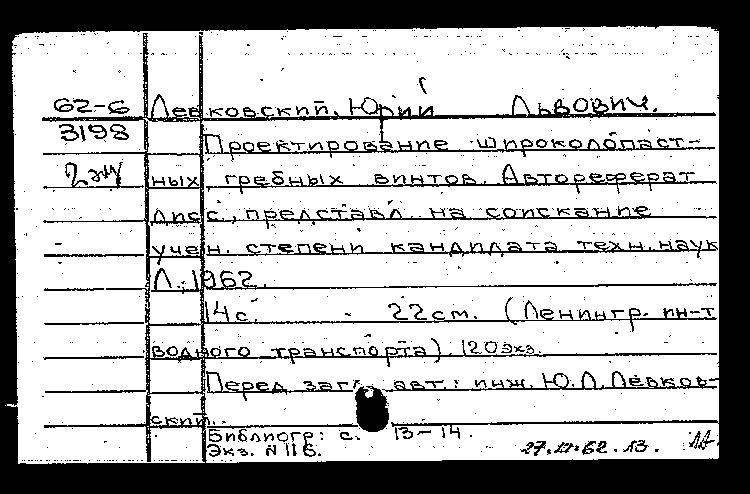 62-6 Левковский, Юрий Львович.
3198 Проектирование широколопаст-
2 экз ных гребных винтов. Автореферат
дисс., представл. на соискание
учен. степени кандидата техн. наук
Л., 1962.
14 с. 22 см. (Ленингр. ин-т
водного транспорта). 120 экз.
Перед загл. авт.: инж. Ю.Л. Левков-
ский.
Библиогр: с. 13-14.
Экз. N 116.
62.13.